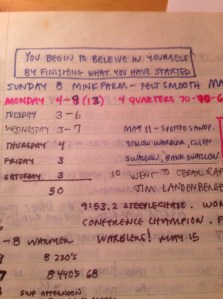 YOU BEGIN TO BELEIVE IN YOURSELF
BY FINISHING WHAT YOU HAVE STARTED
SUNDAY 8 MINK FARM - FELT SMOOTH MA
MONDAY 4-9 (13) 4 QUARTERS 70-
TUESDAY 3-6
WEDNESDAY 3-7 MAY 11 - SPOTTED SANDP.
THURSDAY 4 YELLOW WARBLER, CLIFF
FRIDAY 3 SWALLOW, BANK SWALLOW
SATURDAY 3 10 WENT TO CEDAR RAP
50 JIM LANDENBERGE
9:53.2 STEEPLECHASE. WON
CONFERENCE CHAMPION. F
-8 WARMER WARBLERS! MAY 15
8 220'S
8 440'S 68
SWF AFTERNOON